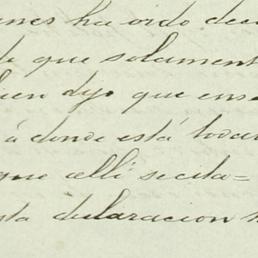 nes ha oido deci
de que solament
uien dijo que ense
á donde está tocan
que alli se cita=
sta declaracion h